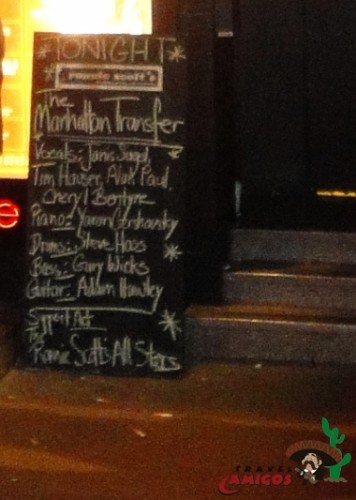 TONIGHT
RONNIE SCOTT'S
The
Manhattan Transfer
Vocals: Janis Siegel,
Tim Hauser, Alan Paul,
Cheryl Bentyne
Piano: Yaron Gershovsky
Drums: Steve Hass
Bass: Gary Wicks
Guitar: Adam Hawley
Support Act
The
Ronnie Scott's All Stars
TRAVEL
AMIGOS